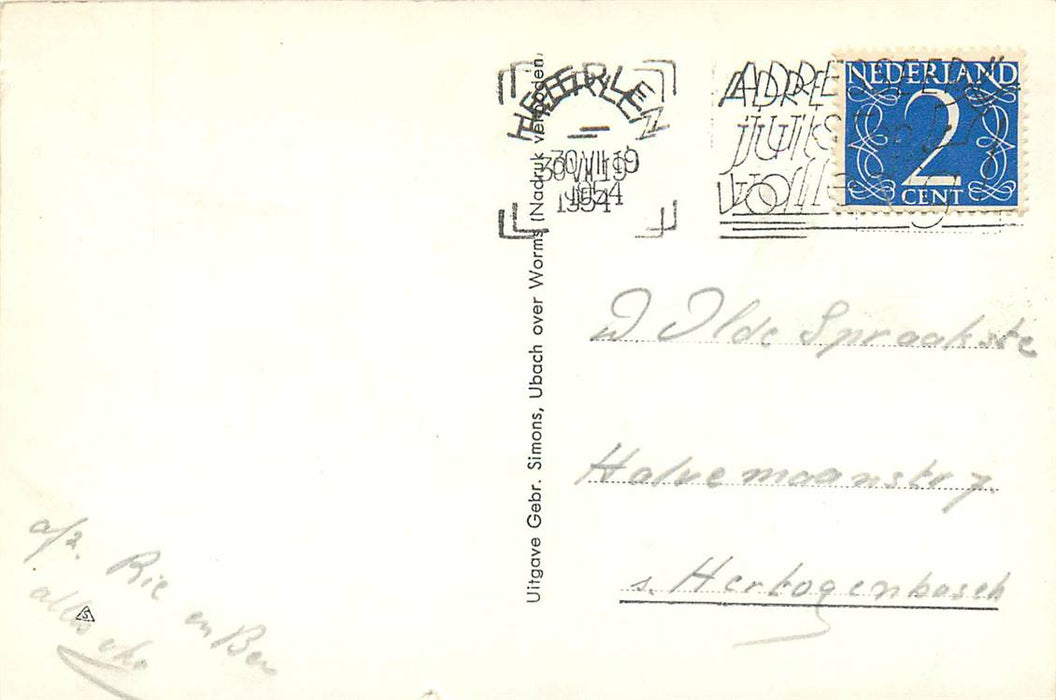 HEERLEN
30 VII 19
1954
ADRESSEER
JUIST en
volledig
NEDERLAND
2
CENT
Uitgave Gebr. Simons, Ubach over Worms (Nadruk verboden)
Spraakste
Halvemaanstr 7.
s. Hertogenbosch
Rie
en Ber
alles oke